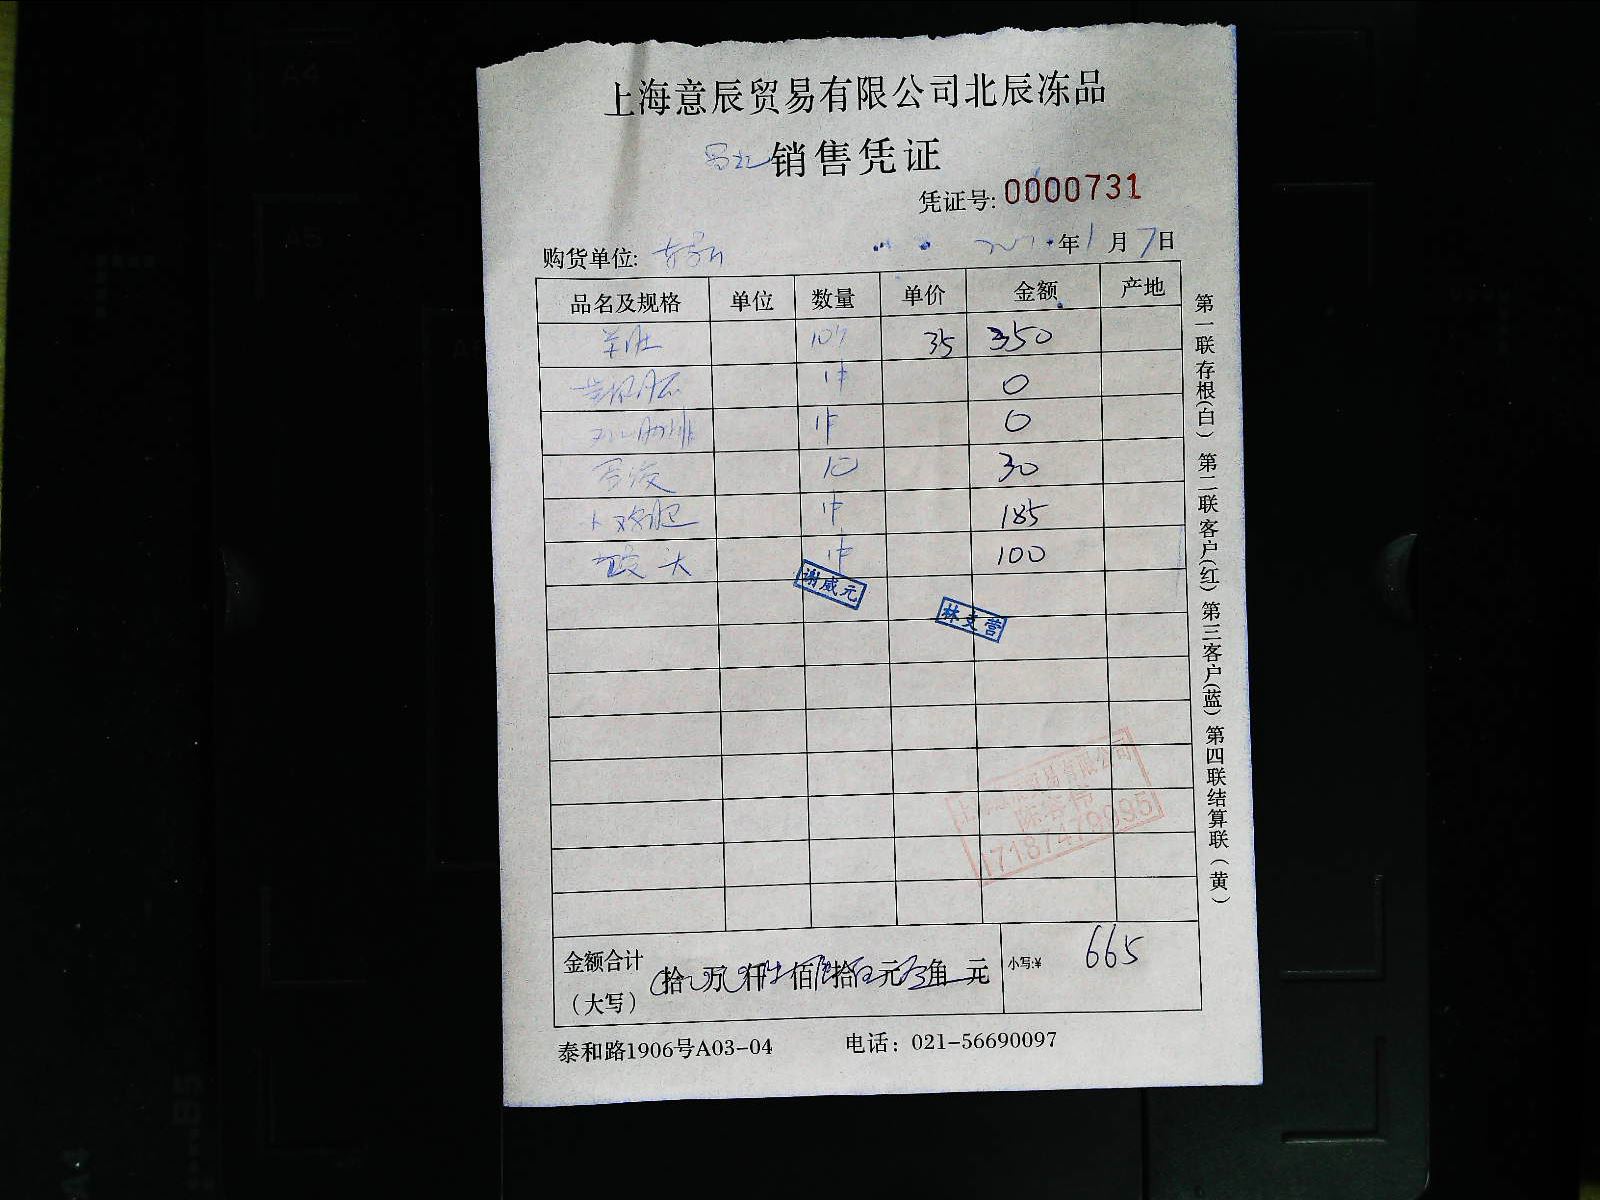 上海意辰贸易有限公司北辰冻品
销售凭证
凭证号: 0000731
购货单位: 年1月7日
品名及规格 单位 数量 单价 金额 产地
羊肚 35 350
1件 0
1件 0
10 30
1件 185
1件 100
谢威元
林支营
贸易有限公司
17187479095
金额合计（大写） 拾 万 仟 佰 拾 元 角 元 小写:¥ 665
泰和路1906号A03-04 电话：021-56690097
第一联存根(白) 第二联客户(红) 第三客户(蓝) 第四联结算联(黄)